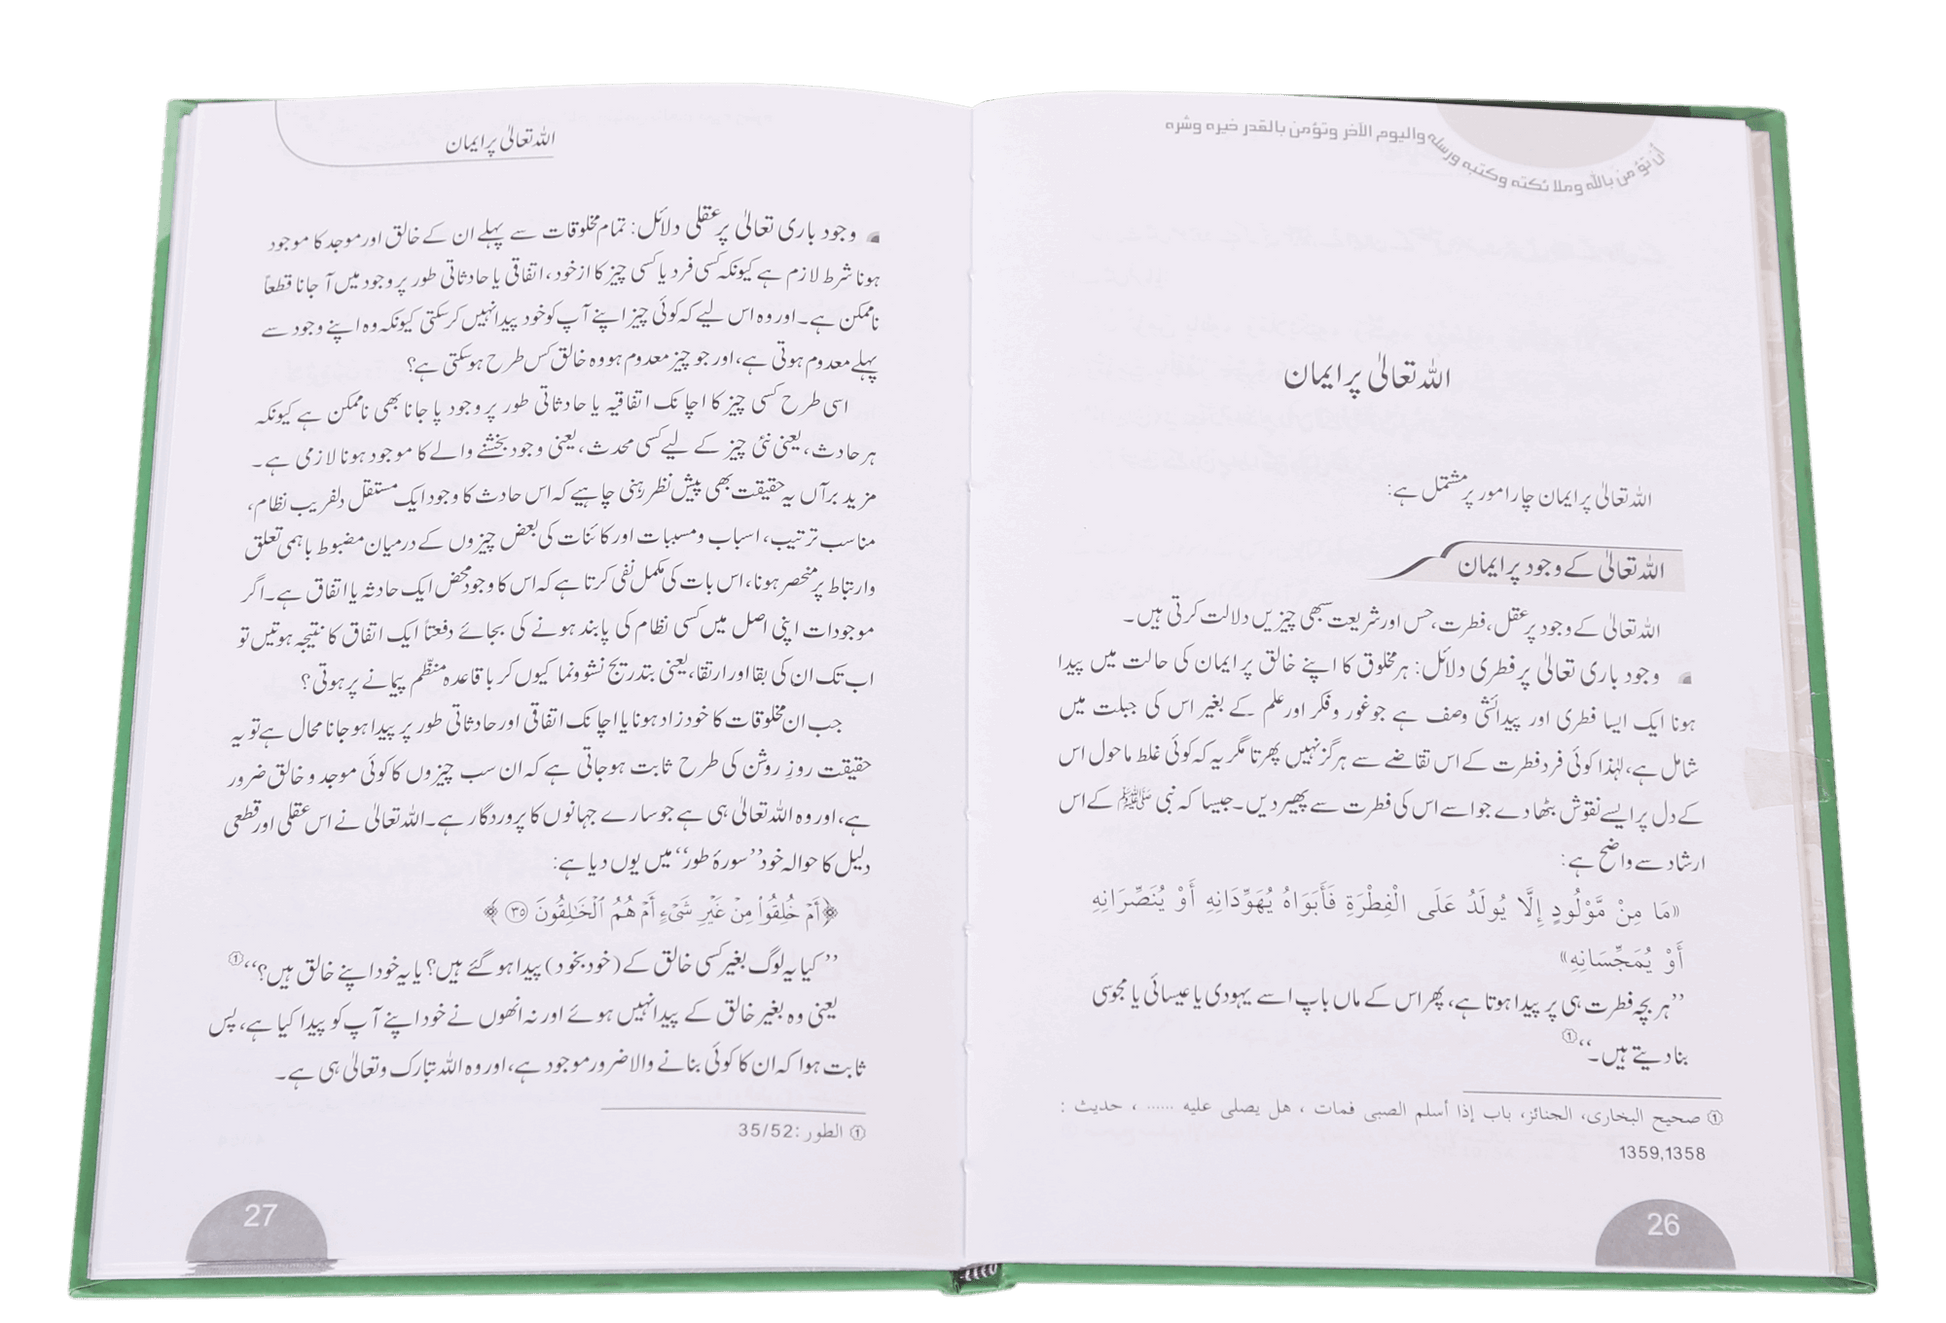 أن تؤمن بالله وملائكته وكتبه ورسله واليوم الآخر وتؤمن بالقدر خيره وشره
اللہ تعالیٰ پر ایمان
اللہ تعالیٰ پر ایمان چار امور پر مشتمل ہے:
اللہ تعالیٰ کے وجود پر ایمان
اللہ تعالیٰ کے وجود پر عقل، فطرت، حس اور شریعت سبھی چیزیں دلالت کرتی ہیں۔
وجود باری تعالیٰ پر فطری دلائل: ہر مخلوق کا اپنے خالق پر ایمان کی حالت میں پیدا
ہونا ایک ایسا فطری اور پیدائشی وصف ہے جو غور و فکر اور علم کے بغیر اس کی جبلت میں
شامل ہے، لہٰذا کوئی فرد فطرت کے اس تقاضے سے ہرگز نہیں پھرتا مگر یہ کہ کوئی غلط ماحول اس
کے دل پر ایسے نقوش بٹھا دے جو اسے اس کی فطرت سے پھیر دیں۔ جیسا کہ نبی ﷺ کے اس
ارشاد سے واضح ہے:
«مَا مِنْ مَّوْلُودٍ إِلَّا يُولَدُ عَلَى الْفِطْرَةِ فَأَبَوَاهُ يُهَوِّدَانِهِ أَوْ يُنَصِّرَانِهِ
أَوْ يُمَجِّسَانِهِ»
’’ہر بچہ فطرت ہی پر پیدا ہوتا ہے، پھر اس کے ماں باپ اسے یہودی یا عیسائی یا مجوسی
بنا دیتے ہیں۔‘‘①
① صحيح البخاري، الجنائز، باب إذا أسلم الصبي فمات ، هل يصلى عليه ...... ، حديث :
1359,1358
26
اللہ تعالیٰ پر ایمان
وجود باری تعالیٰ پر عقلی دلائل: تمام مخلوقات سے پہلے ان کے خالق اور موجد کا موجود
ہونا شرط لازم ہے کیونکہ کسی فرد یا کسی چیز کا ازخود، اتفاقی یا حادثاتی طور پر وجود میں آ جانا قطعاً
ناممکن ہے۔ اور وہ اس لیے کہ کوئی چیز اپنے آپ کو خود پیدا نہیں کر سکتی کیونکہ وہ اپنے وجود سے
پہلے معدوم ہوتی ہے، اور جو چیز معدوم ہو وہ خالق کس طرح ہو سکتی ہے؟
اسی طرح کسی چیز کا اچانک اتفاقیہ یا حادثاتی طور پر وجود پا جانا بھی ناممکن ہے کیونکہ
ہر حادث، یعنی نئی چیز کے لیے کسی محدث، یعنی وجود بخشنے والے کا موجود ہونا لازمی ہے۔
مزید برآں یہ حقیقت بھی پیش نظر رہنی چاہیے کہ اس حادث کا وجود ایک مستقل دلفریب نظام،
مناسب ترتیب، اسباب و مسببات اور کائنات کی بعض چیزوں کے درمیان مضبوط باہمی تعلق
وارتباط پر منحصر ہونا، اس بات کی مکمل نفی کرتا ہے کہ اس کا وجود محض ایک حادثہ یا اتفاق ہے۔ اگر
موجودات اپنی اصل میں کسی نظام کی پابند ہونے کی بجائے دفعتاً ایک اتفاق کا نتیجہ ہوتیں تو
اب تک ان کی بقا اور ارتقا، یعنی بتدریج نشوونما کیوں کر باقاعدہ منظّم پیمانے پر ہوتی؟
جب ان مخلوقات کا خود زاد ہونا یا اچانک اتفاقی اور حادثاتی طور پر پیدا ہو جانا محال ہے تو یہ
حقیقت روزِ روشن کی طرح ثابت ہو جاتی ہے کہ ان سب چیزوں کا کوئی موجد و خالق ضرور
ہے، اور وہ اللہ تعالیٰ ہی ہے جو سارے جہانوں کا پروردگار ہے۔ اللہ تعالیٰ نے اس عقلی اور قطعی
دلیل کا حوالہ خود ’’سورۂ طور‘‘ میں یوں دیا ہے:
﴿أَمْ خُلِقُوا۟ مِنْ غَيْرِ شَىْءٍ أَمْ هُمُ ٱلْخَـٰلِقُونَ ۝٣٥﴾
’’کیا یہ لوگ بغیر کسی خالق کے (خود بخود) پیدا ہو گئے ہیں؟ یا یہ خود اپنے خالق ہیں؟‘‘①
یعنی وہ بغیر خالق کے پیدا نہیں ہوئے اور نہ انھوں نے خود اپنے آپ کو پیدا کیا ہے، پس
ثابت ہوا کہ ان کا کوئی بنانے والا ضرور موجود ہے، اور وہ اللہ تبارک وتعالیٰ ہی ہے۔
① الطور :35/52
27